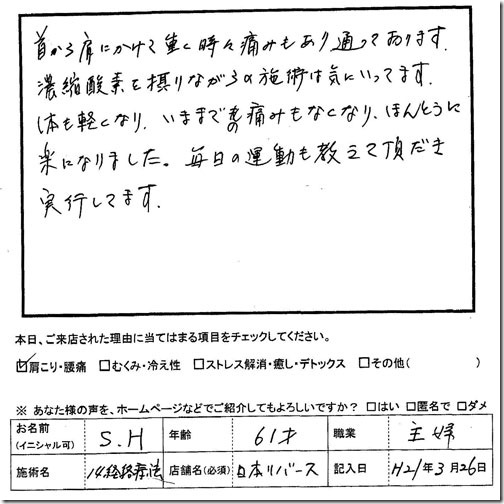 首から肩にかけて重く時々痛みもあり通っております.
濃縮酸素を摂りながらの施術は気にいってます.
体も軽くなり.いままでの痛みもなくなり、ほんとうに
楽になりました。毎日の運動も教えて頂だき
実行してます.
本日、ご来店された理由に当てはまる項目をチェックしてください。
☑肩こり・腰痛 □むくみ・冷え性 □ストレス解消・癒し・デトックス □その他( )
※ あなた様の声を、ホームページなどでご紹介してもよろしいですか？ □はい □匿名で □ダメ
お名前(イニシャル可) S.H 年齢 61才 職業 主婦
施術名 14経絡療法 店舗名(必須) 日本リバース 記入日 H21年3月26日